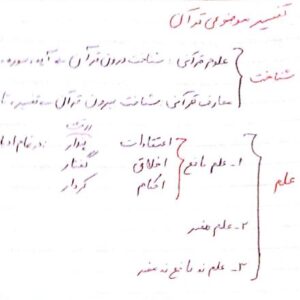 تفسیر موضوعی قرآن
علوم قرآنی: شناخت درون قرآن ← آیه، سوره،
شناخت
معارف قرآنی شناخت بیرون قرآن ← تفسیر،
۱- علم نافع
اعتقادات
پندار
اخلاق
گفتار
احکام
کردار
علم
۲- علم مضر
۳- علم نه نافع نه مضر